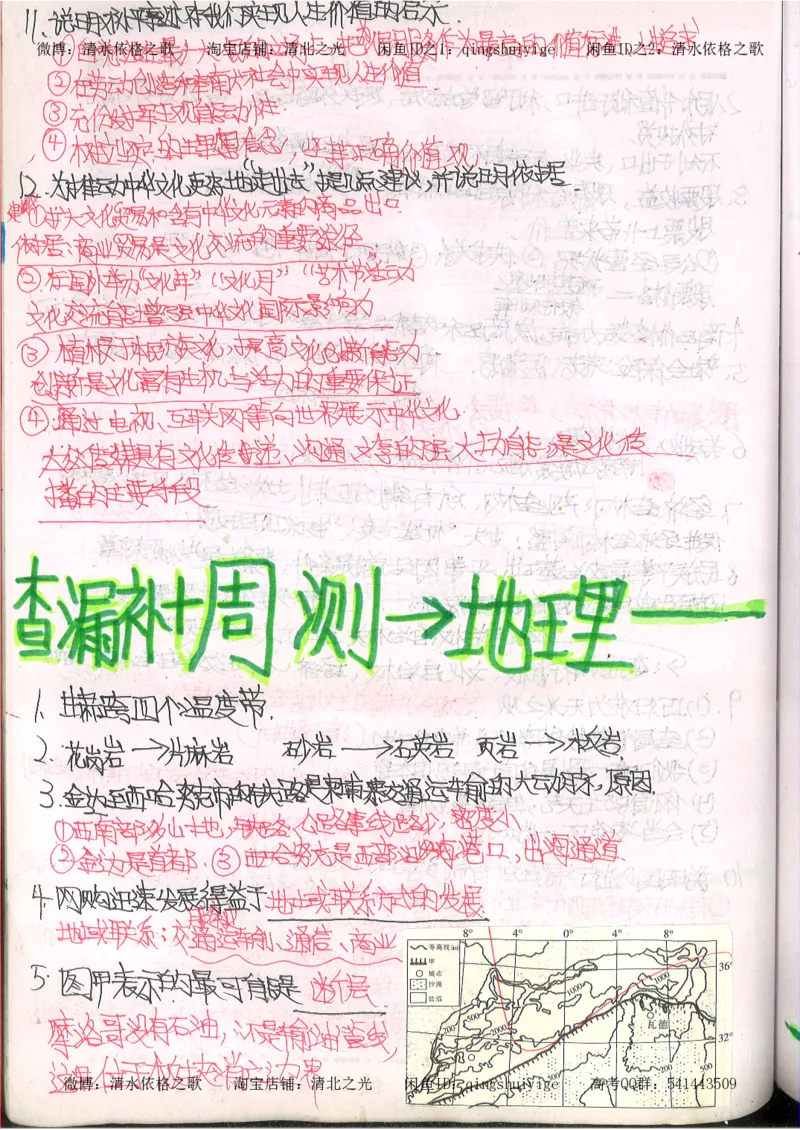 11. 说明 对我们实现人生价值的启示.
微博：清水依格之歌 淘宝店铺：清北之光 闲鱼ID之1：qingshuiyige 闲鱼ID之2：清水依格之歌
②在劳动创造和奉献社会中实现人生价值
③充分发挥主观能动性.
④ 树立 的理想信念, 正确价值观
12. 为推动中华文化更好地“走出去”提几点建议,并说明依据.
建议①扩大文化贸易和含有中华文化元素的商品出口.
依据:商业贸易是文化交流的重要途径
②在国外举办“文化年”“文化月”“艺术节”活动
文化交流有助增强中华文化国际影响力
③植根于本民族文化,提高文化创新能力.
创新是文化富有生机与活力的重要保证
④通过电视、互联网等向世界展示中华文化.
大众传媒具有文化传递、沟通、共享的强大功能,是文化传
播的主要手段
查漏补十周测→地理一
1. 跨四个温度带.
2. 花岗岩→片麻岩 砂岩→石英岩 页岩→板岩
3. 金边至西哈努克市的铁路是柬埔寨交通运输的大动脉,原因.
①西南部多山地, 公路等线路少,密度小
②金边是首都.③西哈努克是西部 海港口,出海通道.
4. 网购迅速发展得益于地域联系方式的发展
地域联系:交通运输、通信、商业
5. 图甲表示的最可能是 断层
摩洛哥没有石油,不是输油管线
8° 4° 0° 4° 8°
等高线(m)
甲
城市
沙漠
盐沼
36°
32°
瓦德
200 500 1000 2000 1000 500 200 500
8° 4° 0° 4° 8°
微博：清水依格之歌 淘宝店铺：清北之光 闲鱼ID：qingshuiyige 高考QQ群：541443509